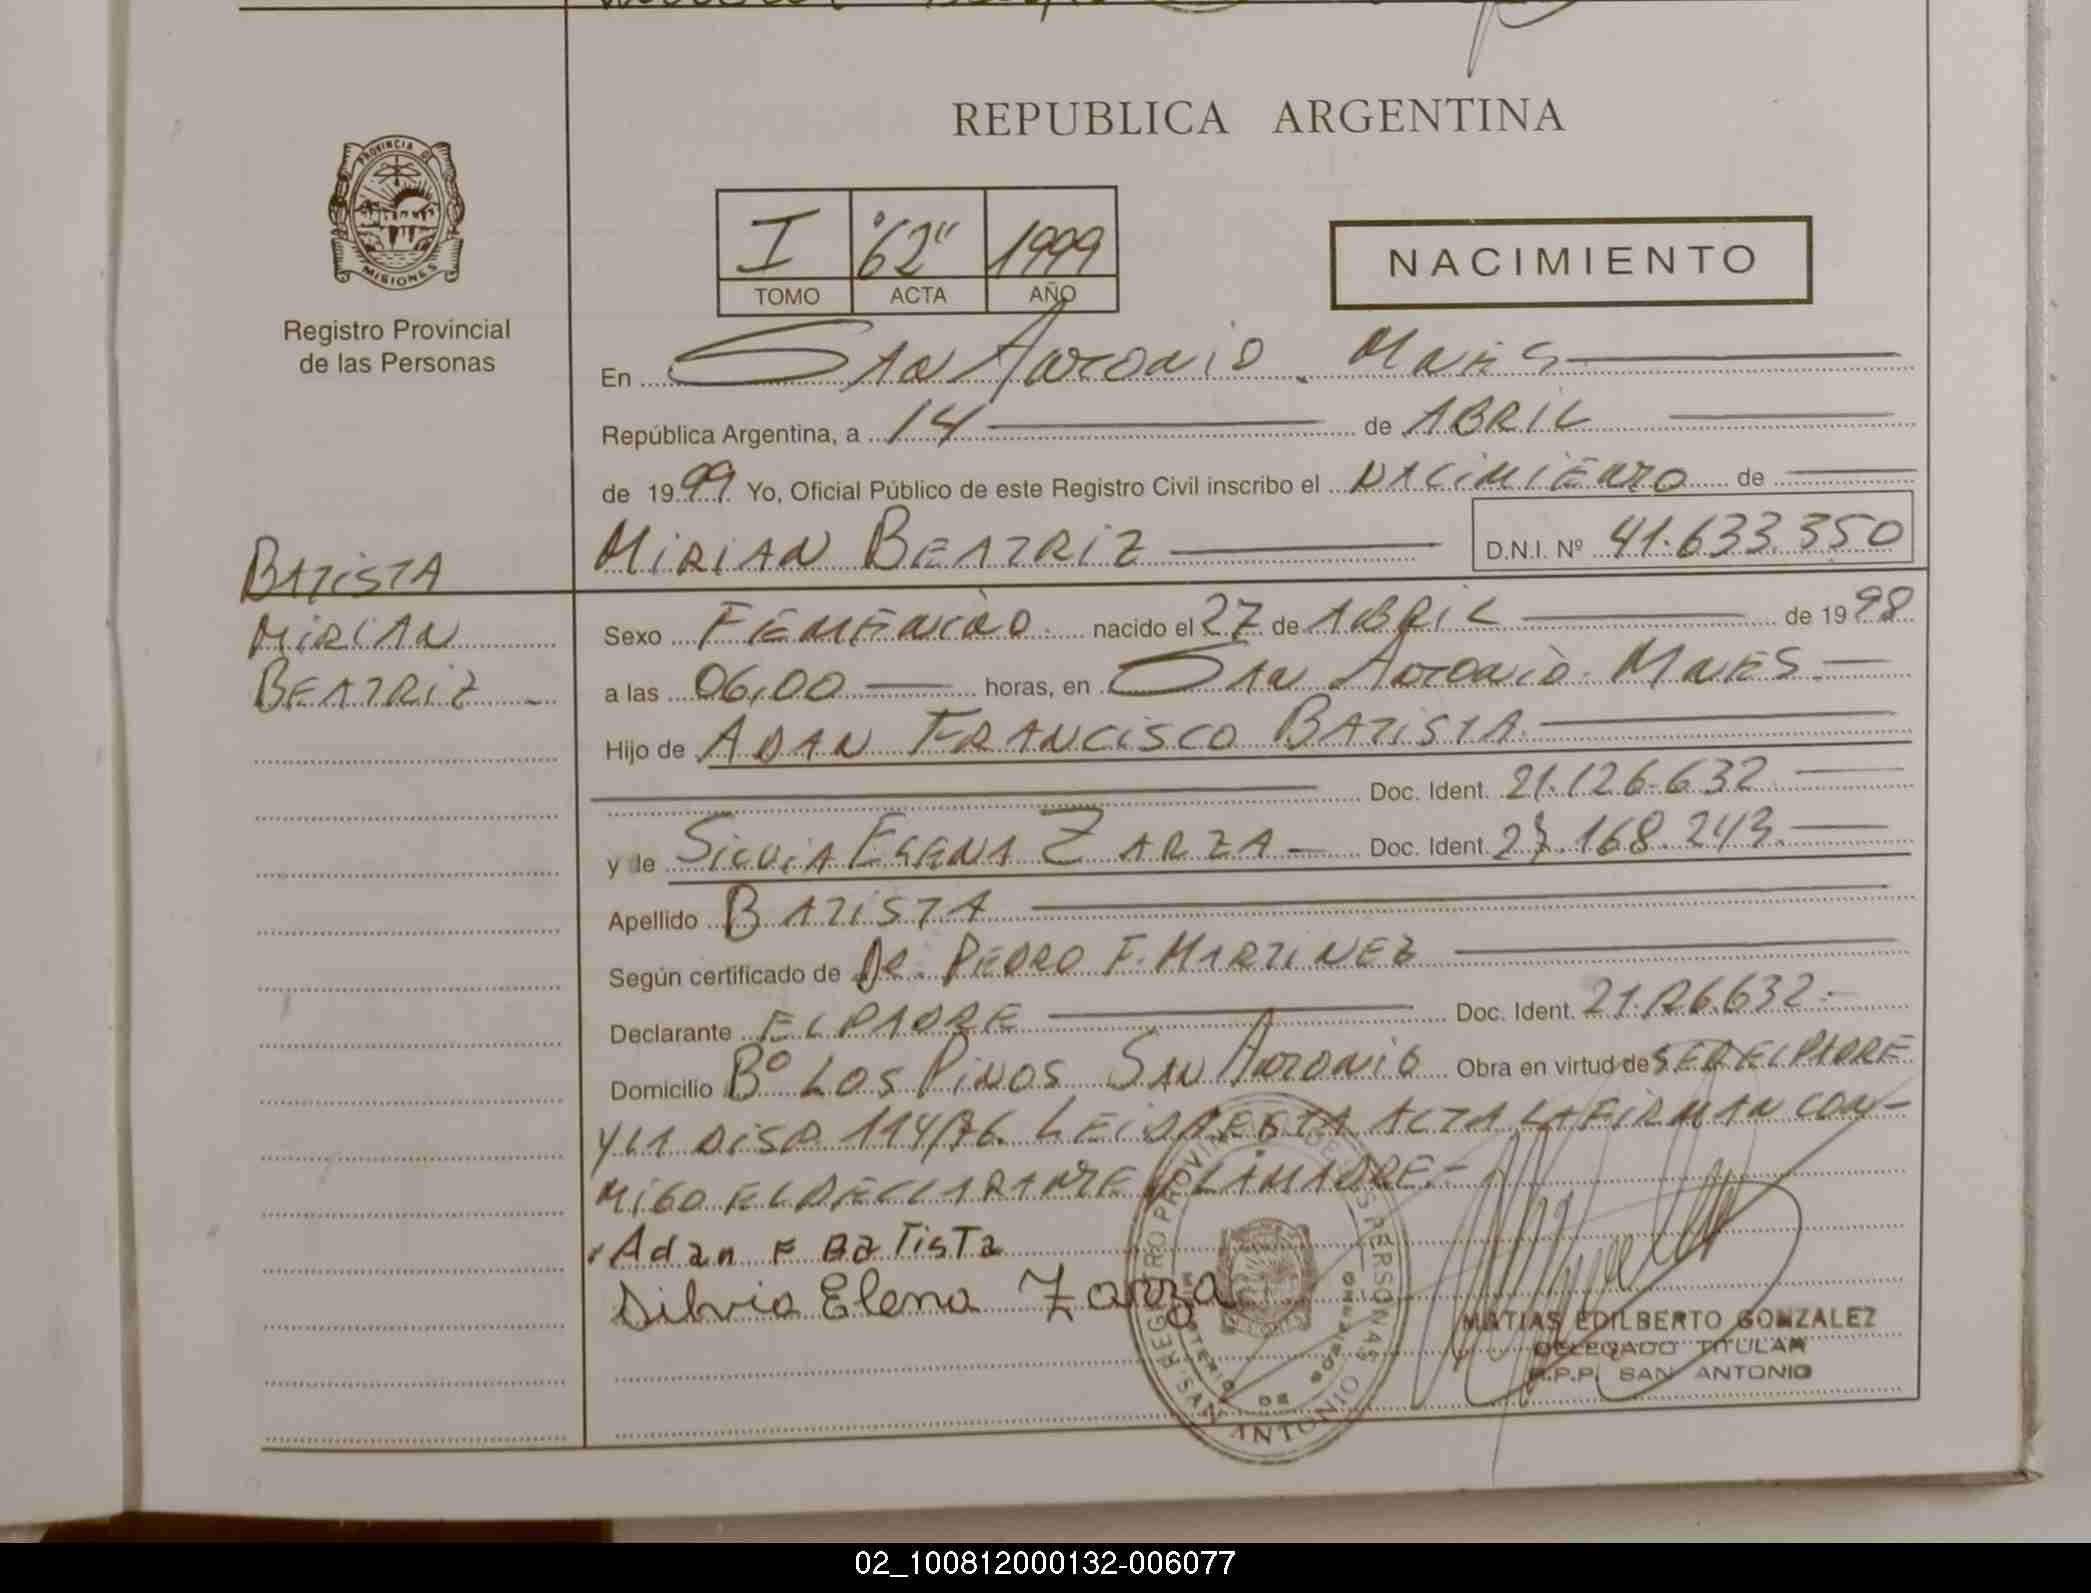 REPUBLICA ARGENTINA
PROVINCIA DE
MISIONES
Registro Provincial
de las Personas
I "62" 1999
TOMO ACTA AÑO
NACIMIENTO
En San Antonio. Mnes
República Argentina, a 14 de ABRIL
de 1999 Yo, Oficial Público de este Registro Civil inscribo el NACIMIENTO de
MIRIAN BEATRIZ D.N.I. Nº 41.633.350
BATISTA
MIRIAN
BEATRIZ
Sexo FEMENINO nacido el 27 de ABRIL de 1998
a las 06,00 horas, en SAN ANTONIO. MNES.
Hijo de ADAN FRANCISCO BATISTA
Doc. Ident. 21.126.632
y de SILVIA ELENA ZARZA Doc. Ident. 27.168.243.
Apellido BATISTA
Según certificado de DR. PEDRO F. MARTINEZ
Declarante EL PADRE Doc. Ident. 21.126.632.-
Domicilio Bº LOS PINOS SAN ANTONIO Obra en virtud de SER EL PADRE
Y LA DISP. 114/76. LEIDA ESTA ACTA LA FIRMAN CON-
MIGO EL DECLARANTE Y LA MADRE.-
Adan F Batista
Silvia Elena Zarza
MATIAS EDILBERTO GONZALEZ
DELEGADO TITULAR
R.P.P. SAN ANTONIO
02_100812000132-006077